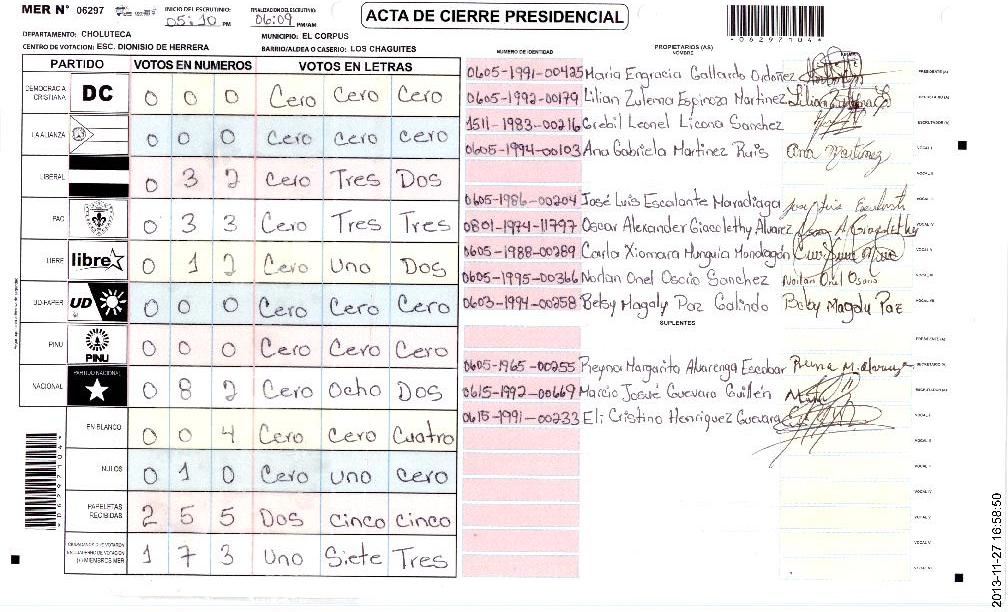 MER N° 06297
INICIO DEL ESCRUTINIO:
05:10 PM
FINALIZACION DEL ESCRUTINIO:
06:09 PM/AM
ACTA DE CIERRE PRESIDENCIAL
DEPARTAMENTO: CHOLUTECA
MUNICIPIO: EL CORPUS
CENTRO DE VOTACION: ESC. DIONISIO DE HERRERA
BARRIO/ALDEA O CASERIO: LOS CHAGUITES
PARTIDO VOTOS EN NUMEROS VOTOS EN LETRAS
DEMOCRACIA CRISTIANA DC 0 0 0 Cero Cero Cero
LA ALIANZA 0 0 0 Cero Cero Cero
LIBERAL 0 3 2 Cero Tres Dos
PAC 0 3 3 Cero Tres Tres
LIBRE libre 0 1 2 Cero Uno Dos
UD-FAPER UD 0 0 0 Cero Cero Cero
PINU PINU 0 0 0 Cero Cero Cero
NACIONAL PARTIDO NACIONAL 0 8 2 Cero Ocho Dos
EN BLANCO 0 0 4 Cero Cero Cuatro
NULOS 0 1 0 Cero uno Cero
PAPELETAS RECIBIDAS 2 5 5 Dos cinco cinco
CIUDADANOS QUE VOTARON EN CUADERNO DE VOTACION (+) MIEMBROS MER 1 7 3 Uno Siete Tres
NUMERO DE IDENTIDAD
PROPIETARIOS (AS)
NOMBRE
0605-1991-00425 Maria Engracia Gallardo Ordoñez PRESIDENTE (A)
0605-1992-00179 Lilian Zulema Espinoza Martinez SECRETARIO (A)
1511-1983-00216 Crebil Leonel Licona Sanchez ESCRUTADOR (A)
0605-1994-00103 Ana Gabriela Martinez Ruis Ana Martinez VOCAL I
VOCAL II
0605-1986-00204 José Luis Escalante Maradiaga Jose Luis Escalante
0801-1974-11797 Oscar Alexander Giacolethy Alvarez
0605-1988-00289 Carla Xiomara Munguia Mondragón
0605-1995-00366 Norlan Onel Osorio Sanchez Norlan Onel Osorio
0603-1994-00258 Betsy Magaly Paz Galindo Betsy Magaly Paz
SUPLENTES
PRESIDENTE (A)
0605-1965-00255 Reyna Margarita Alvarenga Escobar SECRETARIO (A)
0615-1992-00669 Marcio Josué Guevara Guillén
0615-1991-00233 Eli Cristino Henriquez Guevara VOCAL I
VOCAL II
VOCAL IV
VOCAL V
2013-11-27 16:58:50